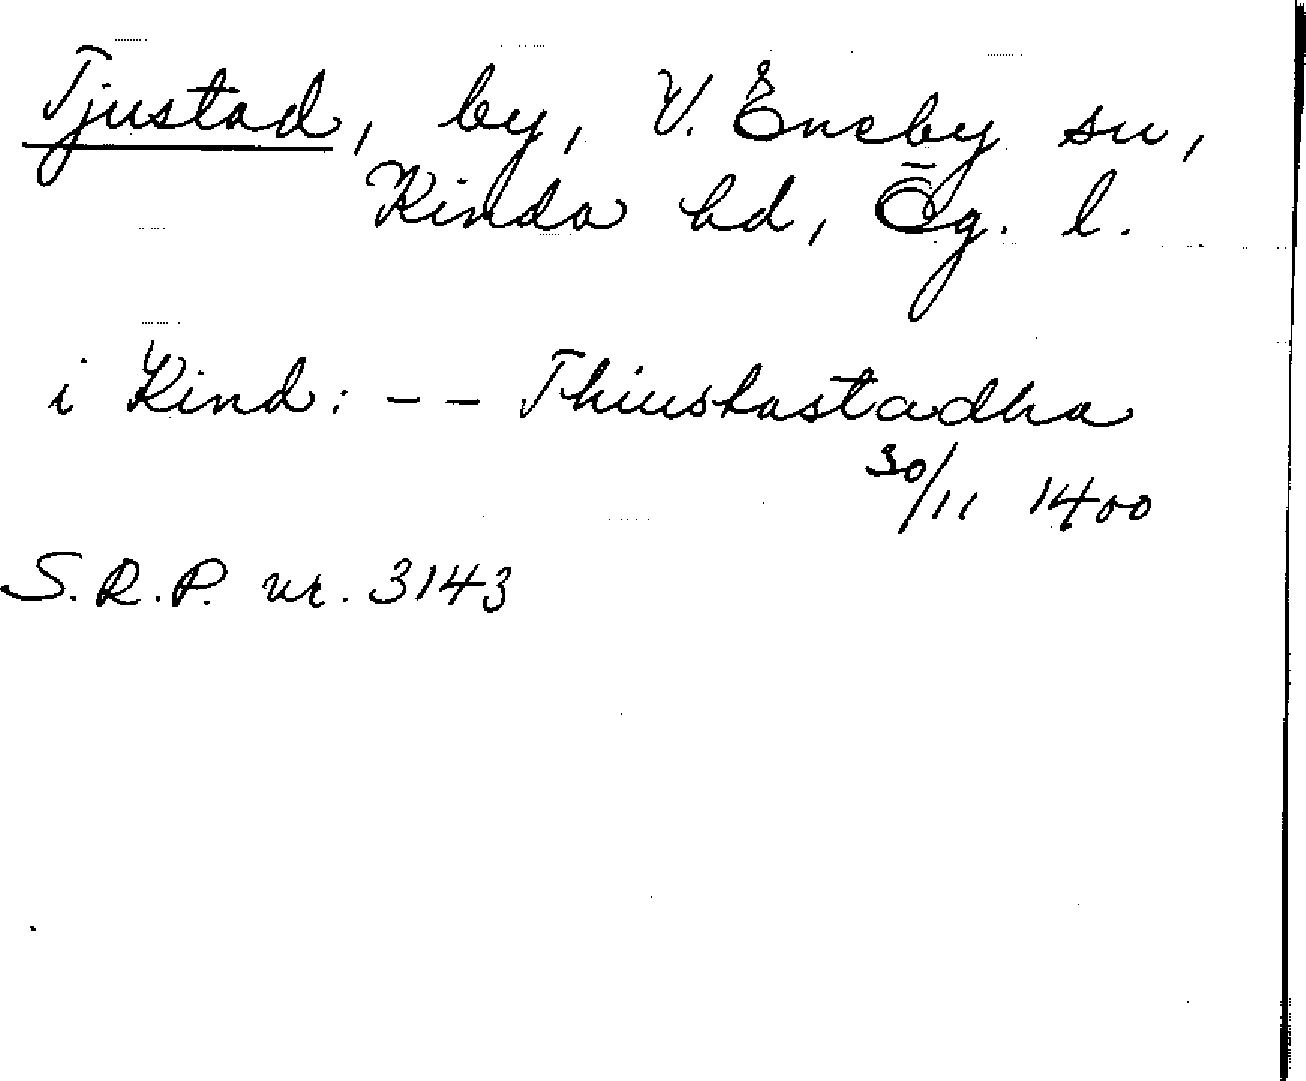 Tjustad, by, V. Eneby sn,
Kinda hd, Ög. l.
i Kind: -- Thiustastadha
30/11 1400
S.R.P. nr. 3143